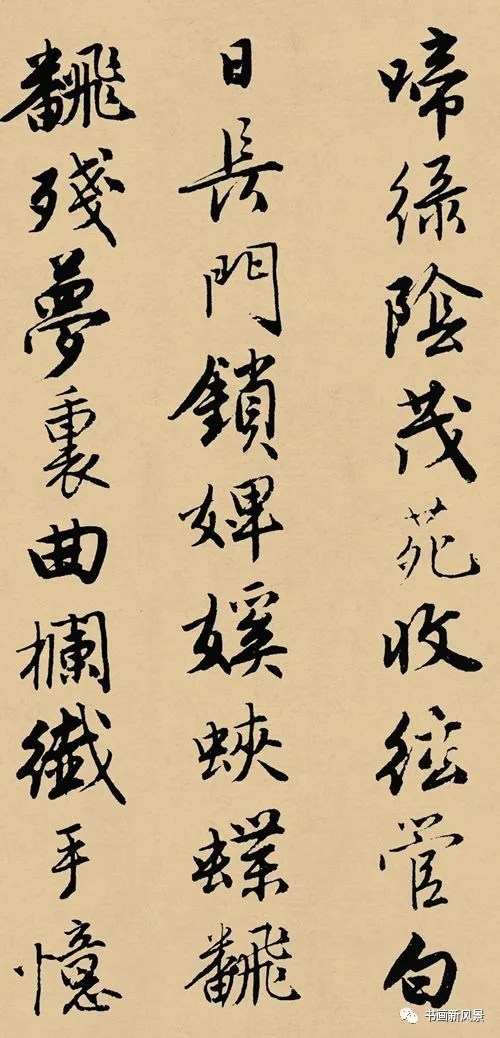 啼綠陰茂苑收絃管白
日長門鎖婢㜎蛺蝶飜
飜殘夢裏曲欄纖手憶
书画新风景